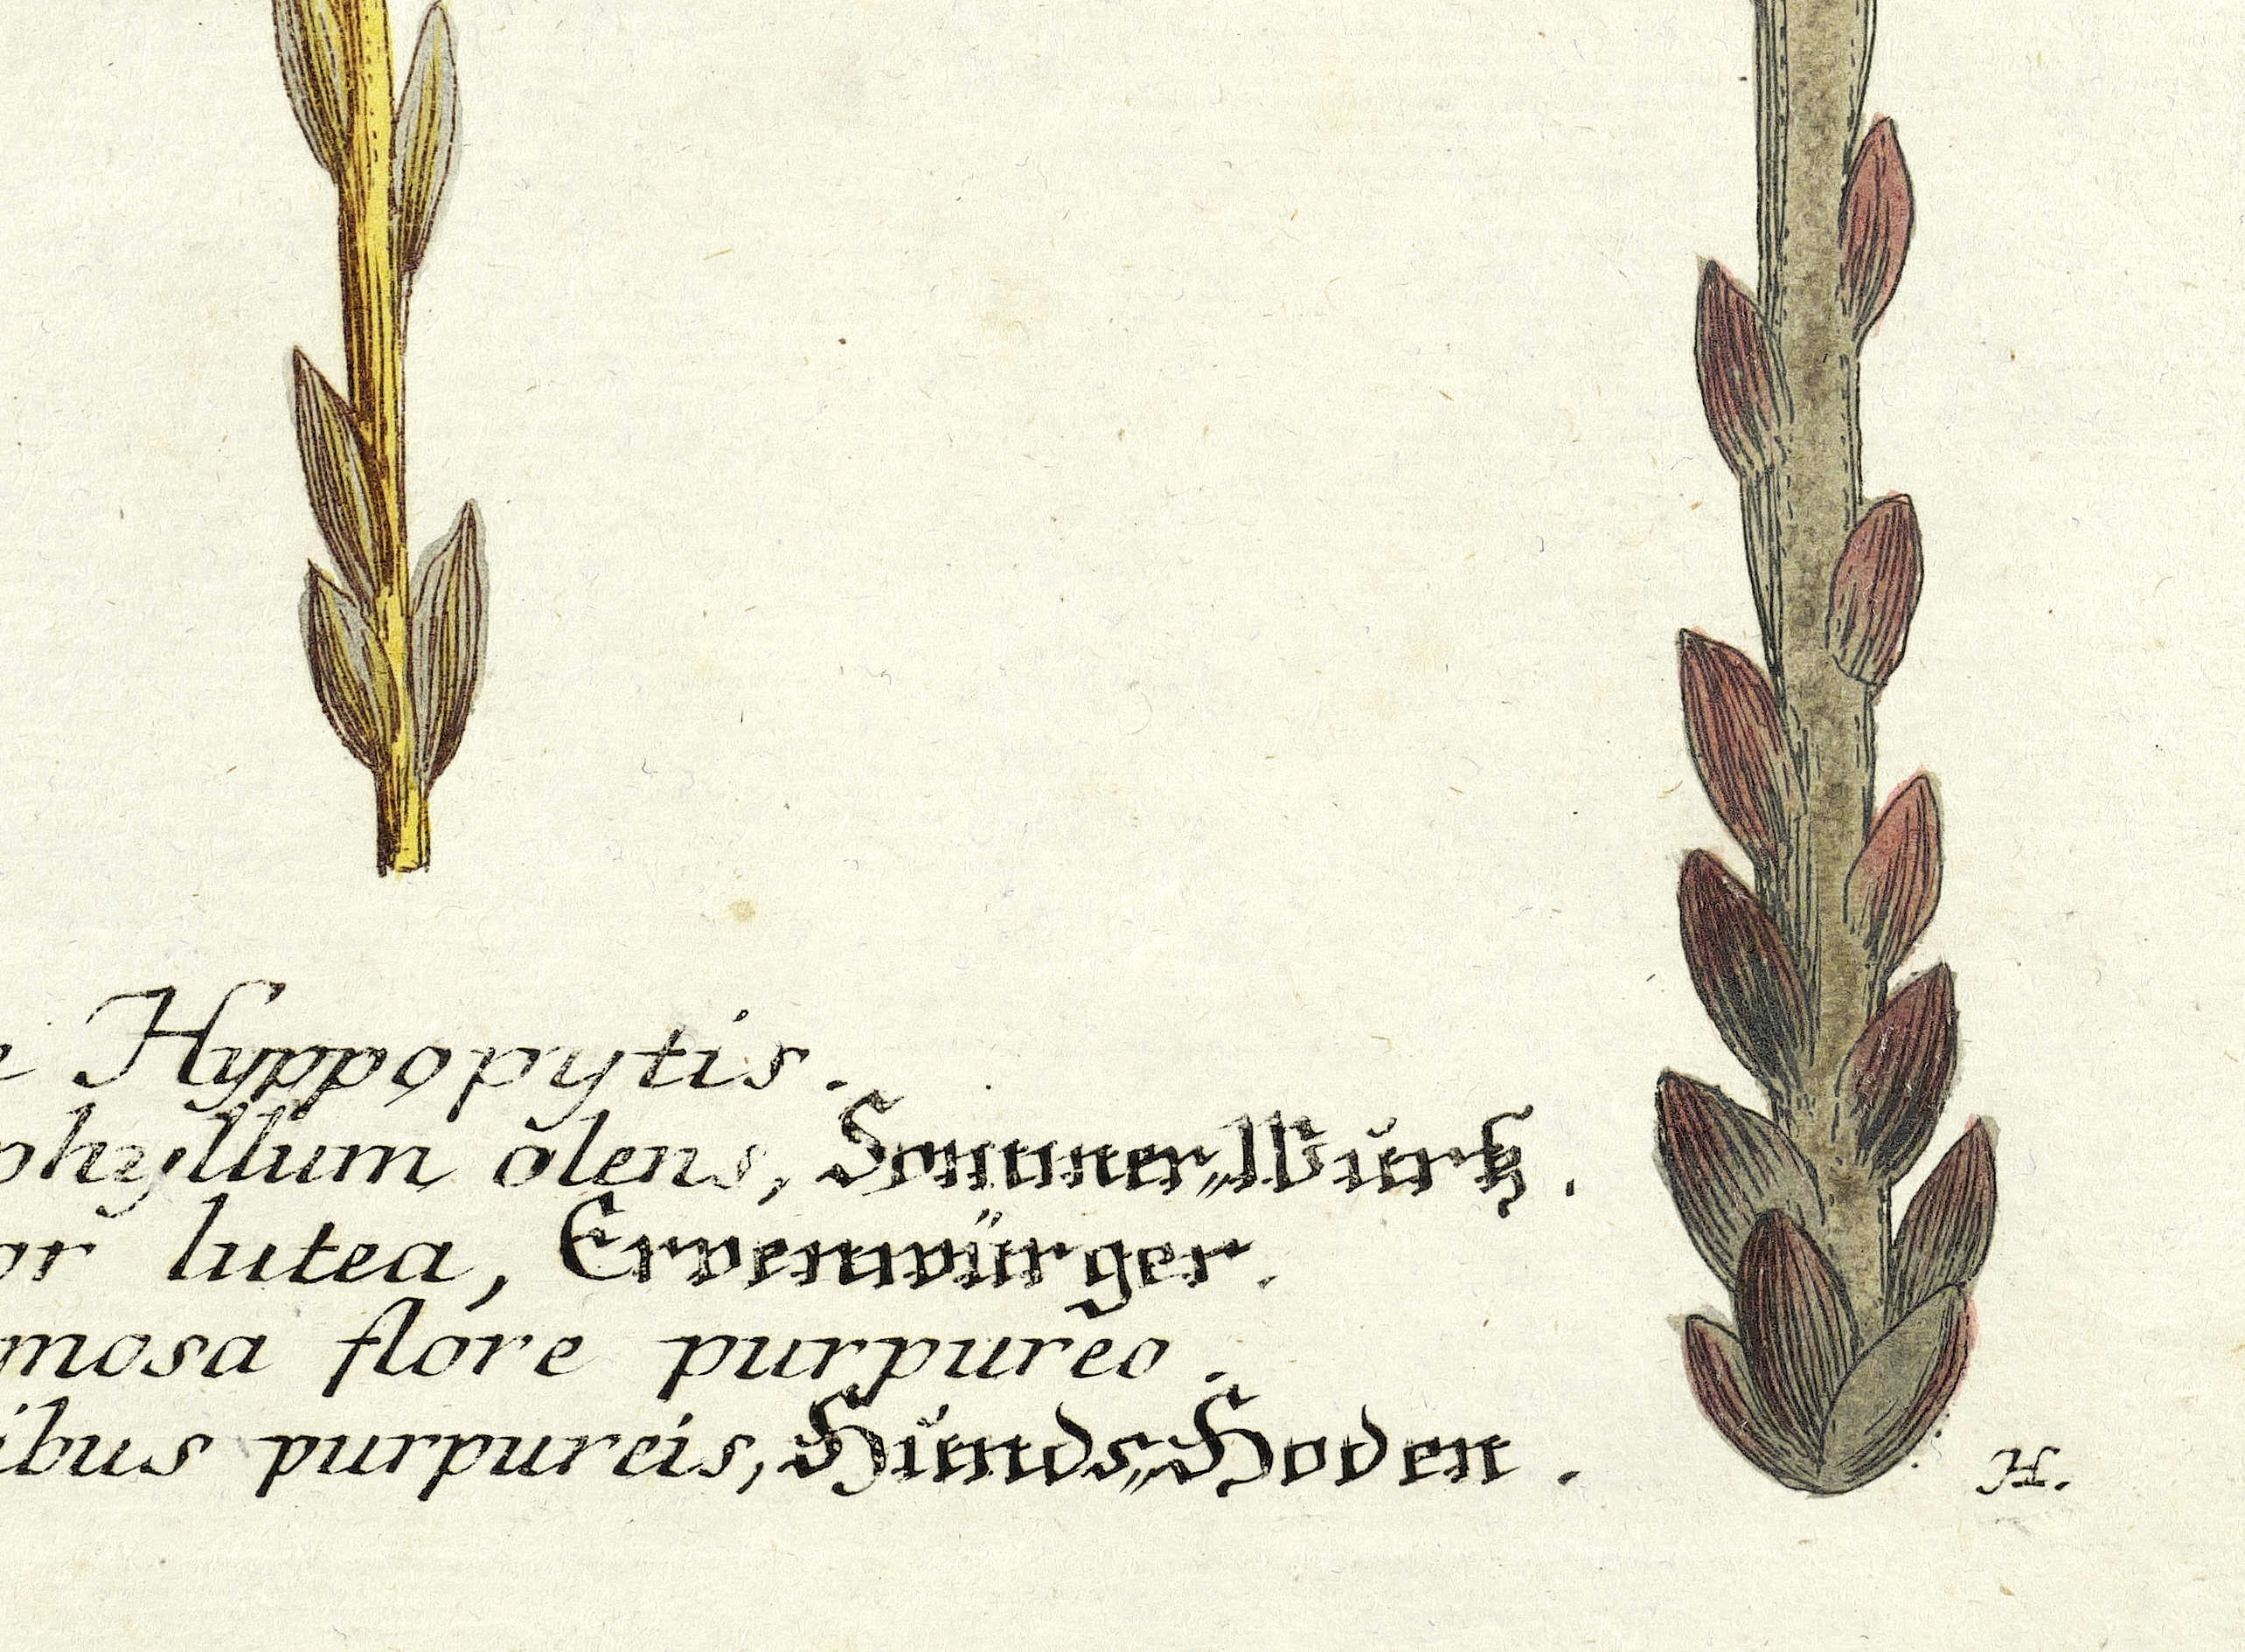 e Hyppopytis.
phyllum olens, Sommer„Wŭrtz.
or lutea, Ervenwürger.
mosa flore purpureo.
ibus purpureis, Hŭnds„Hoden.
H.